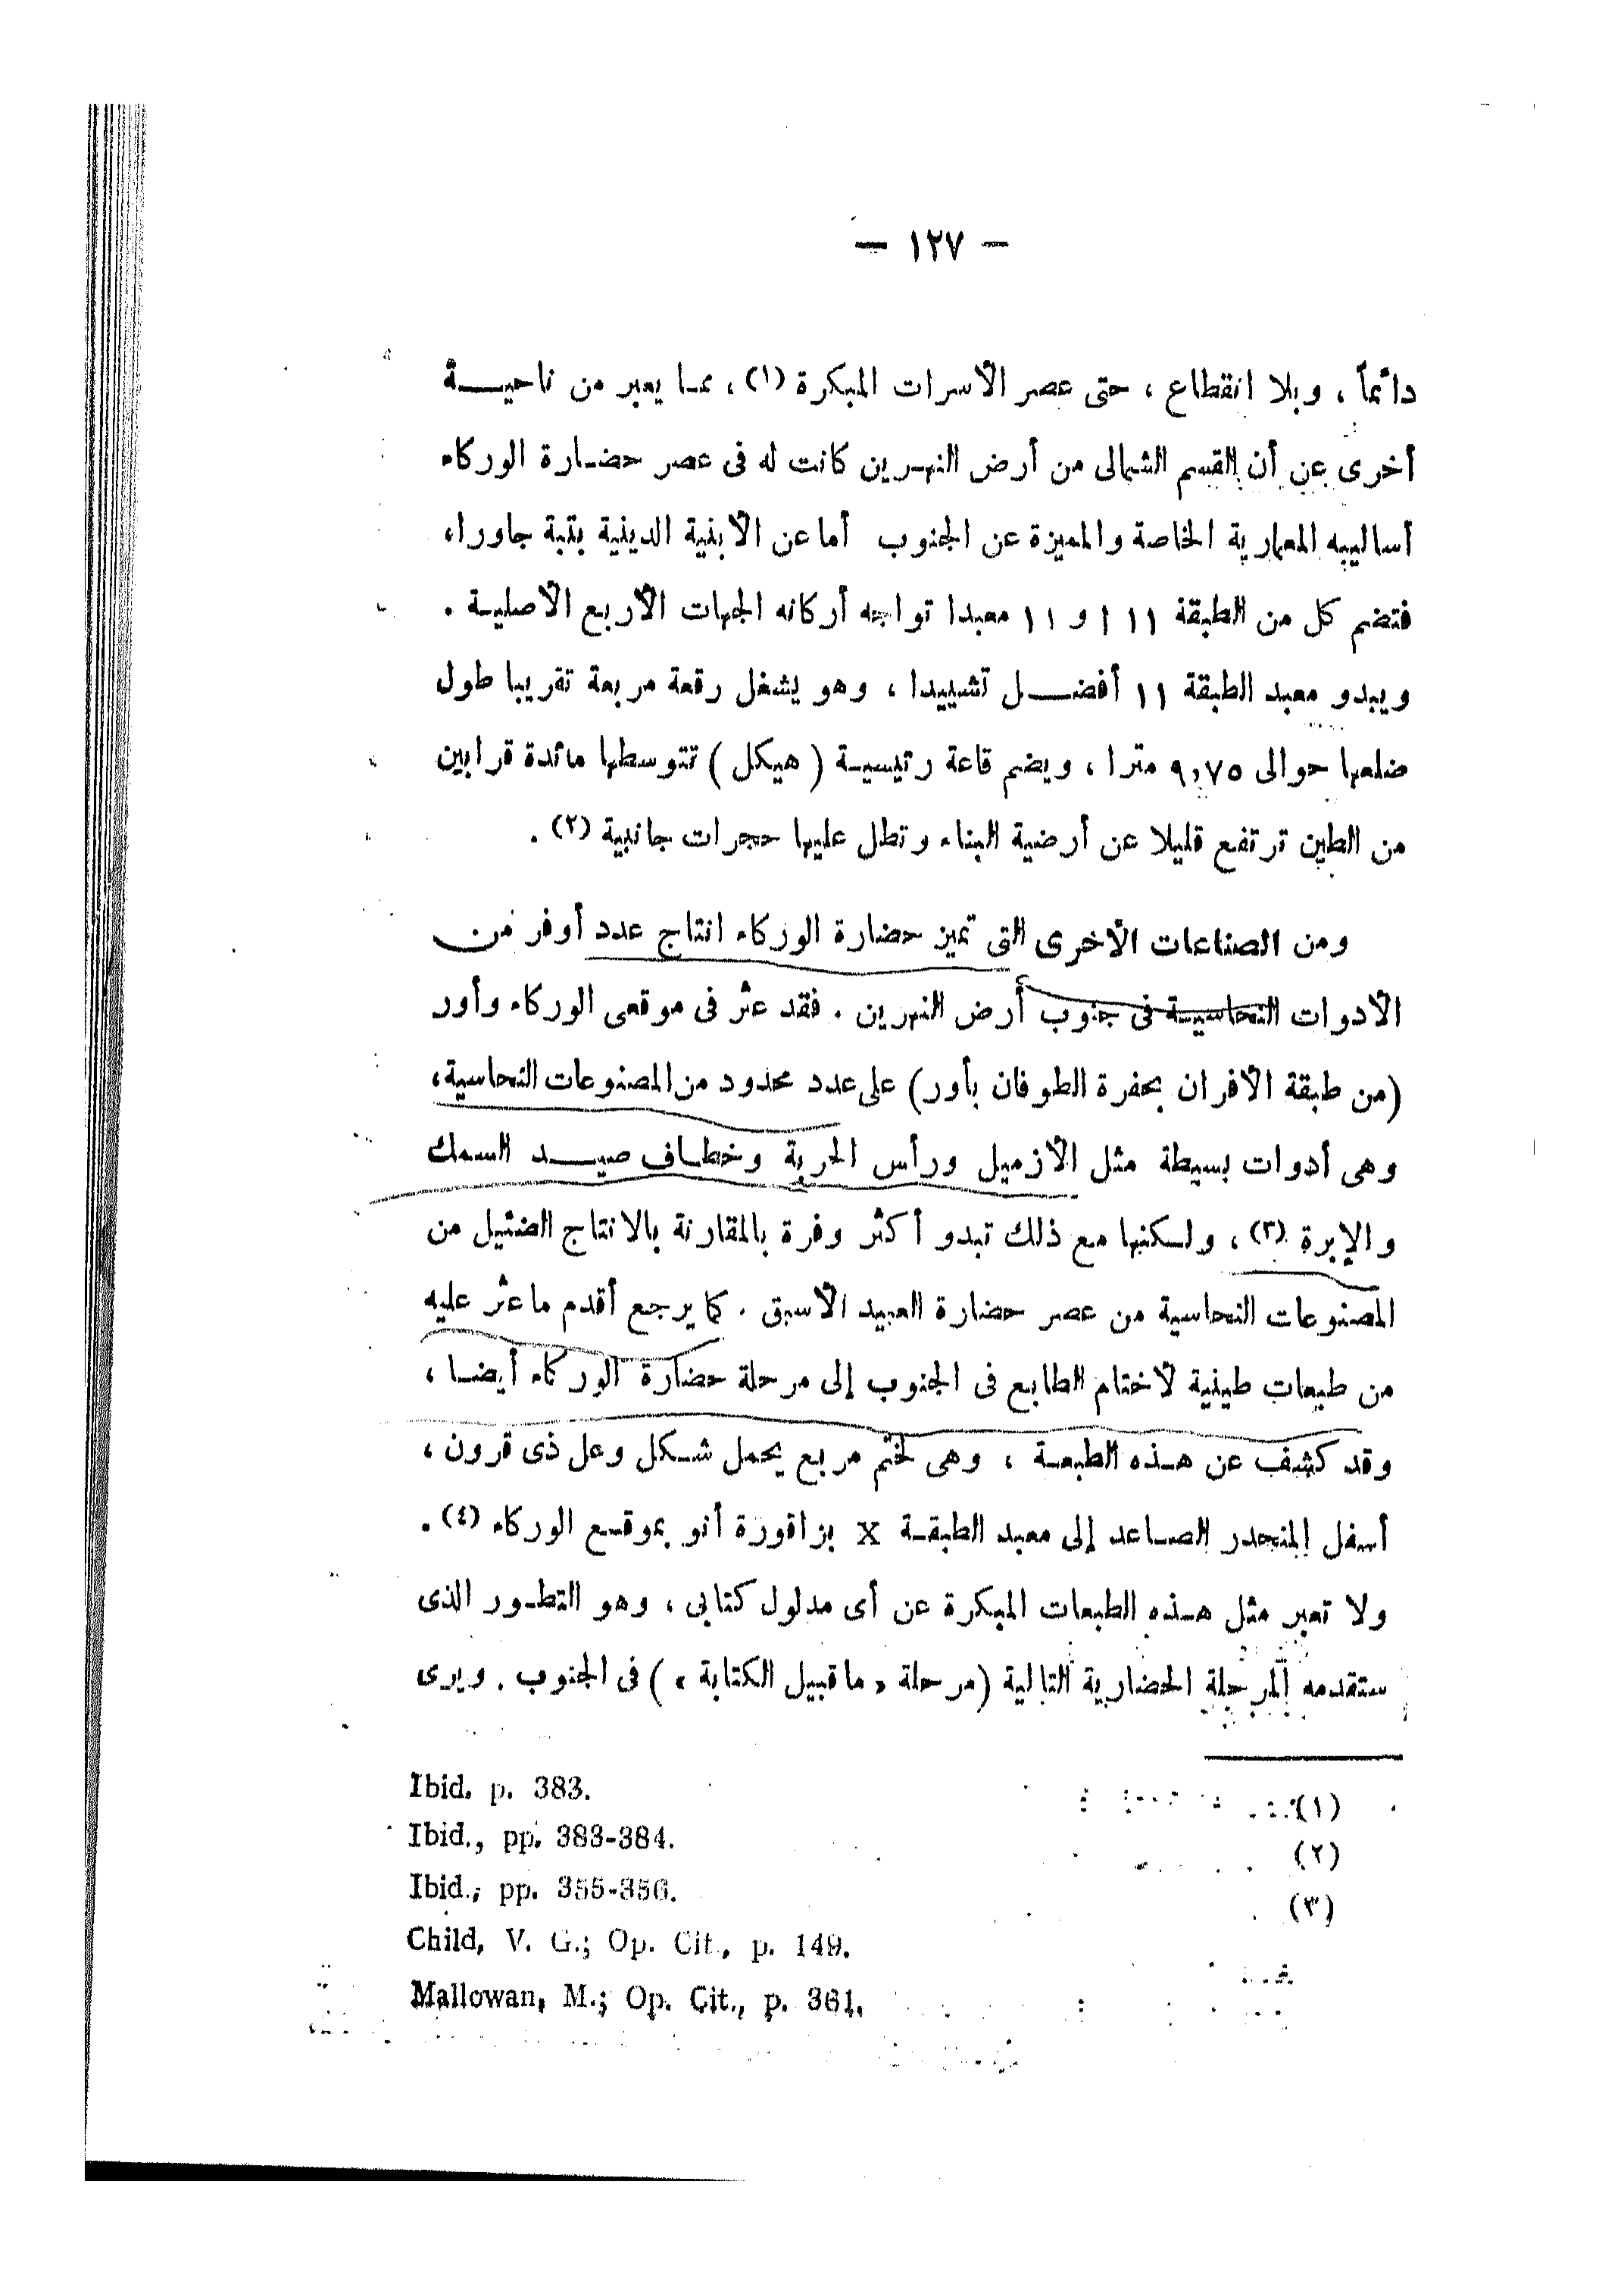 — ١٢٧ —
دائماً ، وبلا انقطاع ، حتى عصر الأسرات المبكرة (١) ، مما يعبر من ناحيـــة
أخرى عن أن القسم الشمالى من أرض النهرين كانت له فى عصر حضارة الوركاء
أساليبه المعمارية الخاصة والمميزة عن الجنوب أما عن الأبنية الدينية بتبة جاورا،
فتضم كل من الطبقة ١١١ و ١١ معبدا تواجه أركانه الجهات الأربع الأصلية .
ويبدو معبد الطبقة ١١ أفضـــل تشييدا ، وهو يشغل رقعة مربعة تقريبا طول
ضلعها حوالى ٩,٧٥ مترا ، ويضم قاعة رئيسية ( هيكل ) تتوسطها مائدة قرابين
من الطين ترتفع قليلا عن أرضية البناء وتطل عليها حجرات جانبية (٢) .
ومن الصناعات الأخرى التى تميز حضارة الوركاء انتاج عدد أوفر من
الأدوات النحاسية فى جنوب أرض النهرين . فقد عثر فى موقعى الوركاء وأور
(من طبقة الأفران بحفرة الطوفان بأور) على عدد محدود من المصنوعات النحاسية،
وهى أدوات بسيطة مثل الأزميل ورأس الحربة وخطاف صيـــد السمك
والإبرة (٣) ، ولكنها مع ذلك تبدو أكثر وفرة بالمقارنة بالانتاج الضئيل من
المصنوعات النحاسية من عصر حضارة العبيد الأسبق . كما يرجع أقدم ما عثر عليه
من طبعات طينية لأختام الطابع فى الجنوب إلى مرحلة حضارة الوركاء أيضا ،
وقد كشف عن هذه الطبعة ، وهى لختم مربع يحمل شكل وعل ذى قرون ،
أسفل المنحدر الصاعد إلى معبد الطبقة X بزاقورة أنو بموقع الوركاء (٤) .
ولا تعبر مثل هذه الطبعات المبكرة عن أى مدلول كتابى ، وهو التطور الذى
ستقدمه المرحلة الحضارية التالية (مرحلة « ما قبيل الكتابة ») فى الجنوب . ويرى
(١) Ibid. p. 383.
(٢) Ibid., pp. 383-384.
(٣) Ibid., pp. 355-356.
Child, V. G.; Op. Cit., p. 149.
Mallowan, M.; Op. Cit., p. 361.